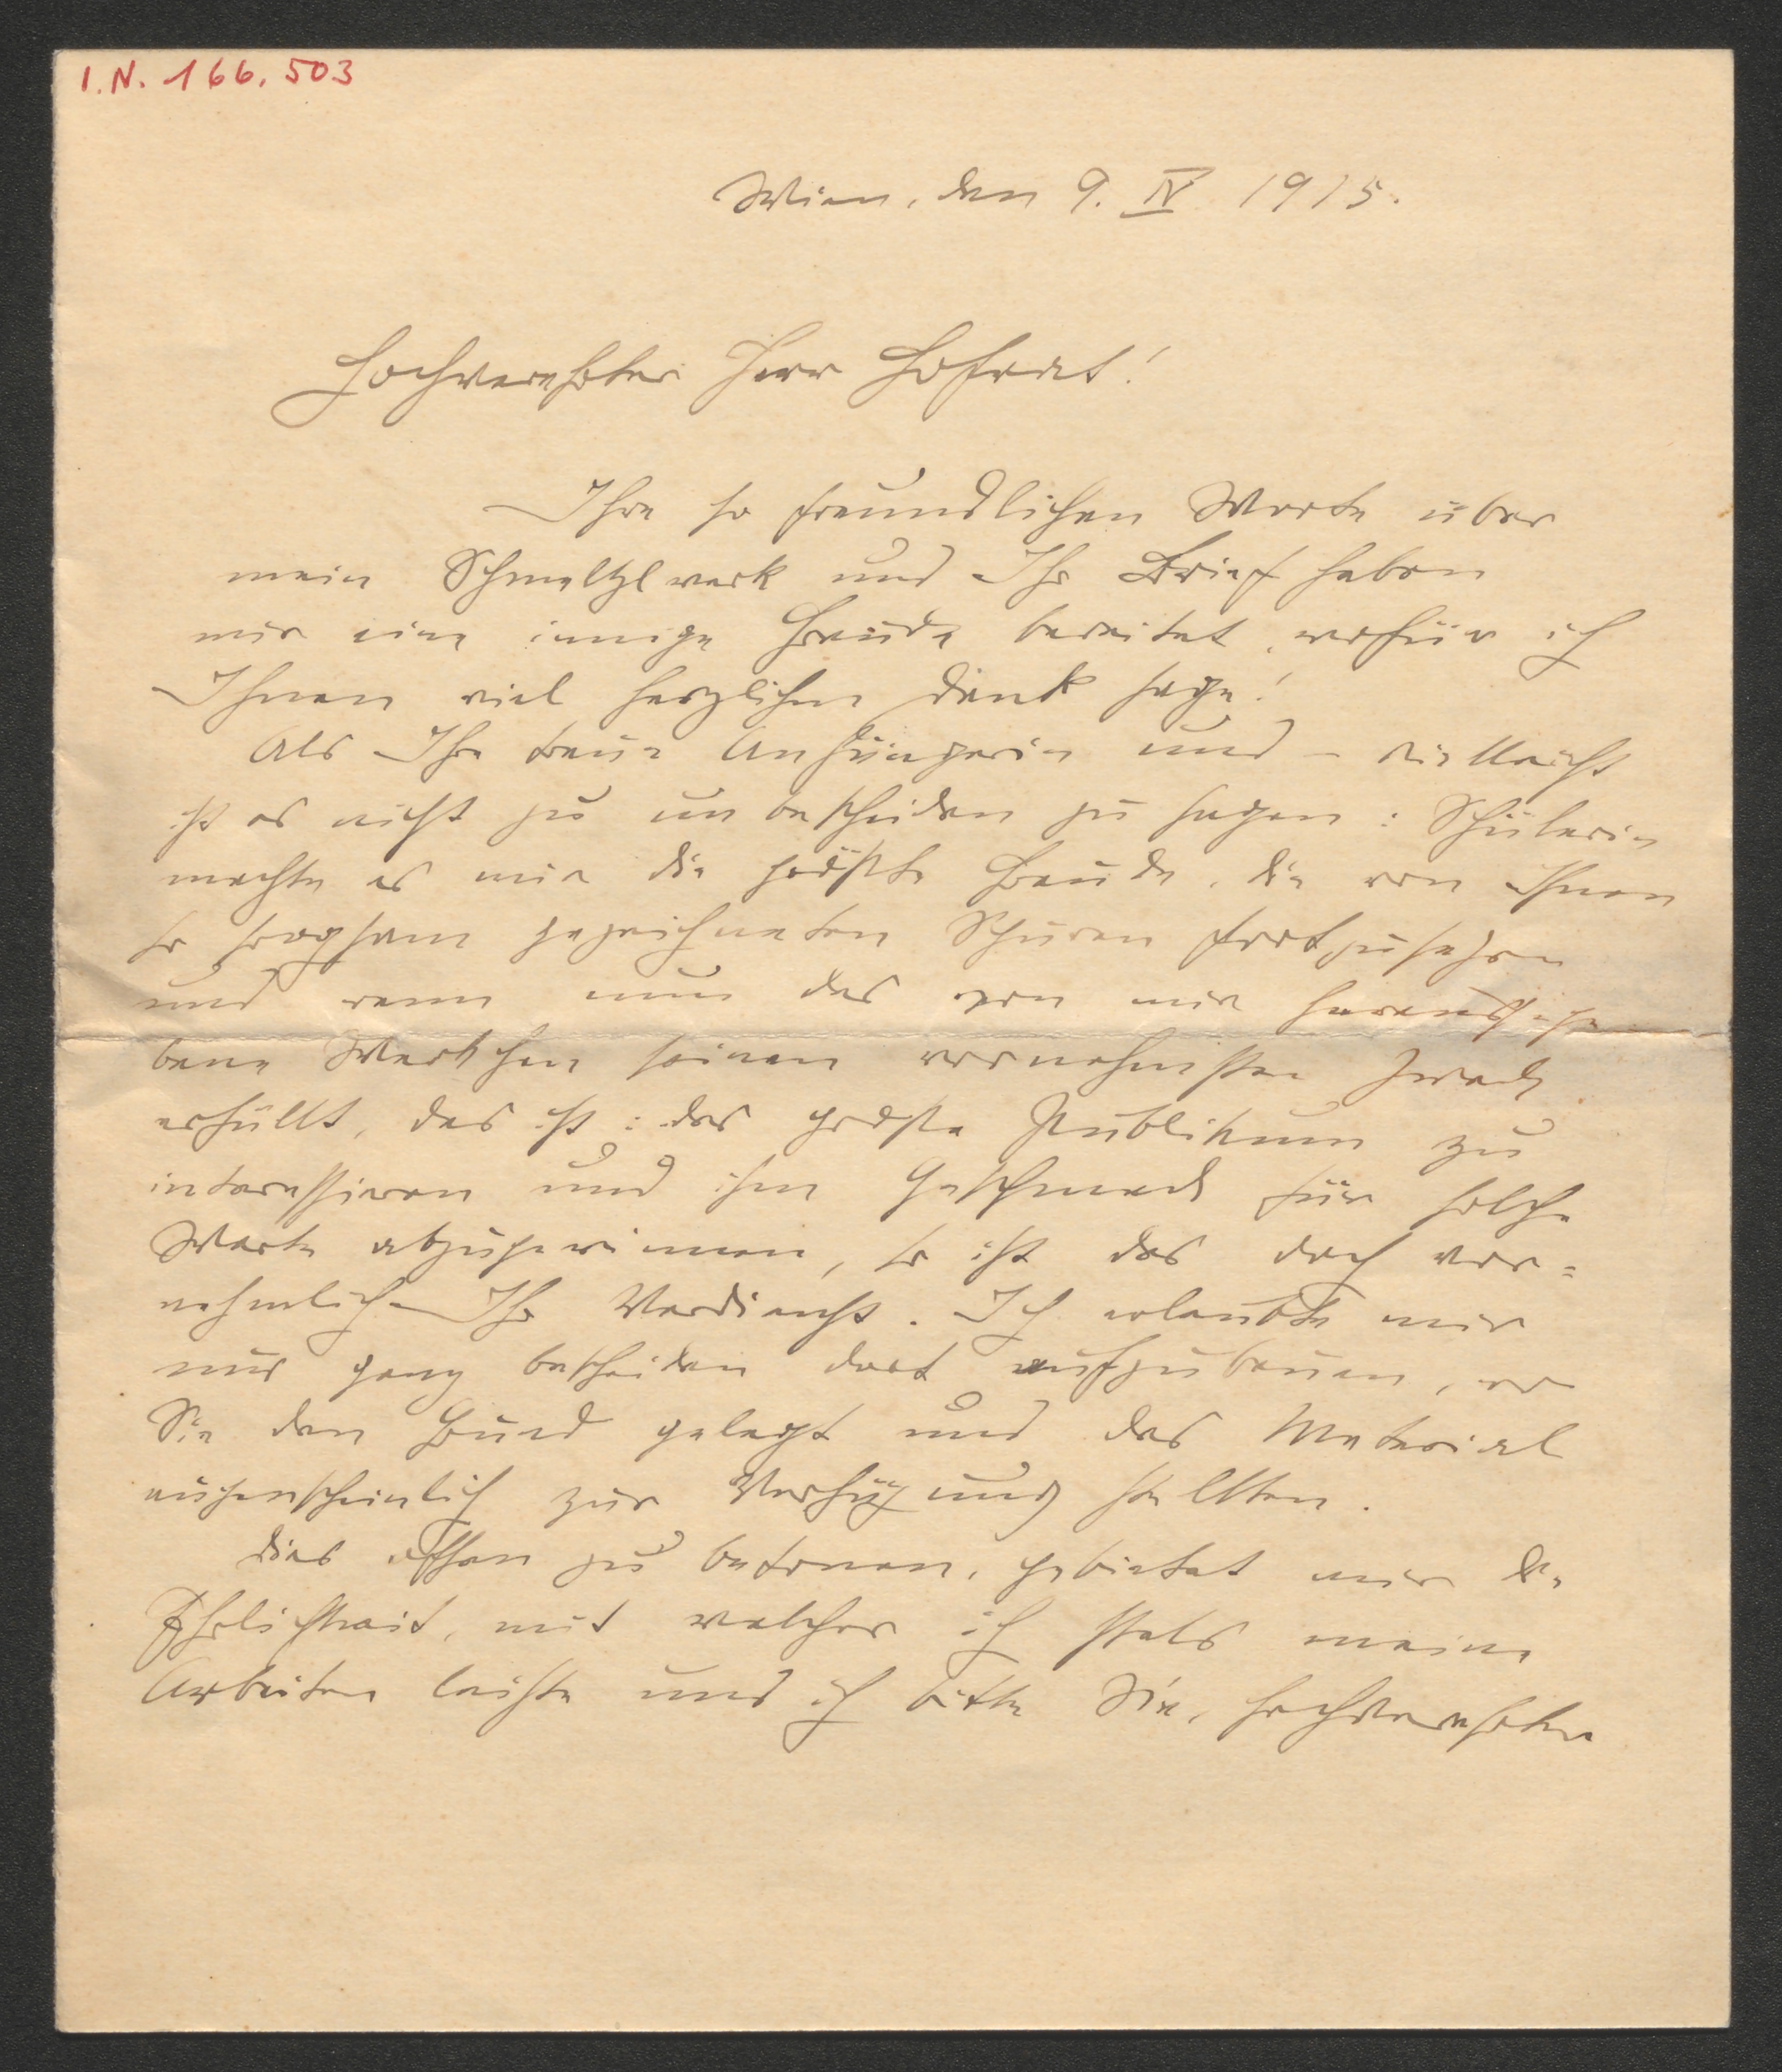 I.N. 166.503
Wien, den 9. IV 1915.
Hochverehrter Herr Hofrat!
Ihre so freundlichen Worte über
mein Schmeltzlwerk und Ihr Brief haben
mir eine innige Freude bereitet, wofür ich
Ihnen viel herzlichen Dank sage!
Als Ihre treue Anhängerin und – vielleicht
ist es nicht zu unbescheiden zu sagen: Schülerin
machte es mir die größte Freude, die von Ihnen
so sorgsam gezeichneten Spuren fortzusetzen
und wenn nun das von mir herausgege
bene Werkchen seinen vornehmsten Zweck
erfüllt, das ist: das große Publikum zu
interessieren und ihm Geschmack für solche
Werke abzugewinnen, so ist das doch vor=
nehmlich Ihr Verdienst. Ich erlaubte mir
nur ganz bescheiden dort aufzubauen, wo
Sie den Grund gelegt und das Material
augenscheinlich zur Verfügung stellten.
Dies offen zu betonen, gebietet mir die
Ehrlichkeit, mit welcher ich stets meine
Arbeiten leiste und ich bitte Sie, hochverehrter